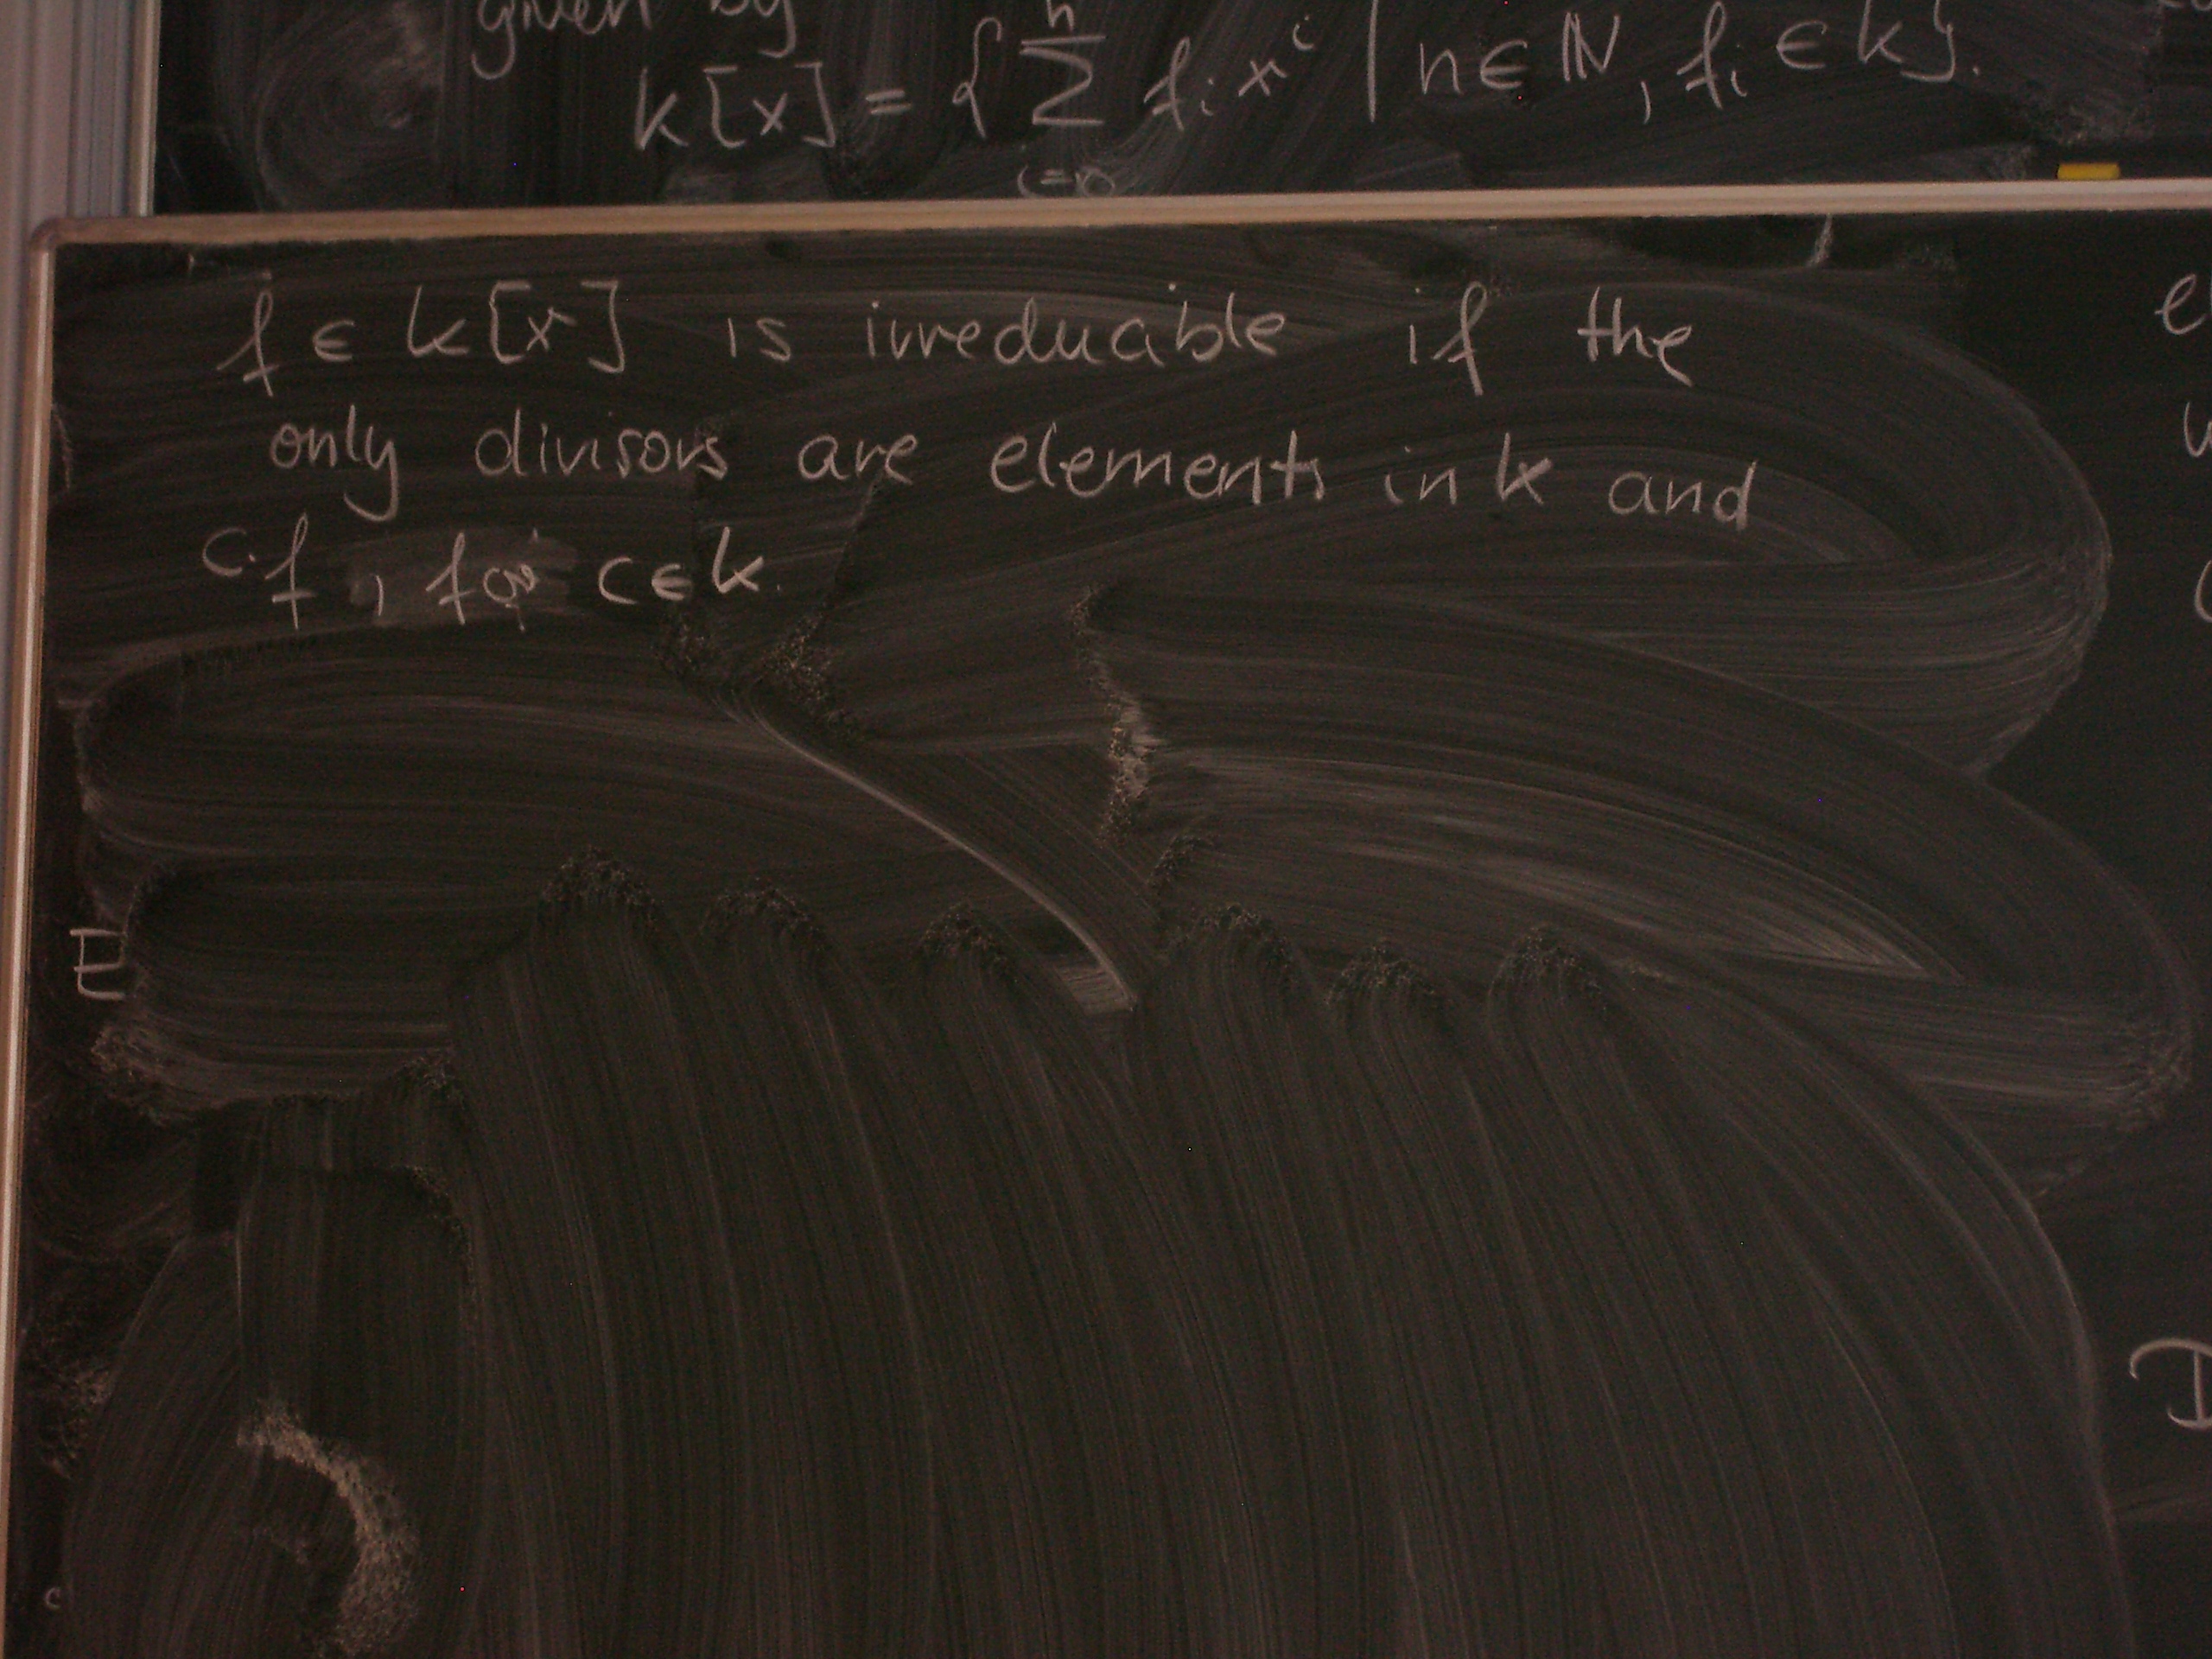 given by
k[x] = { ∑ᵢ₌₀ⁿ fᵢ xⁱ | n ∈ ℕ, fᵢ ∈ k}.
f ∈ k[x] is irreduciable if the
only divisors are elements in k and
c·f, for c ∈ k.